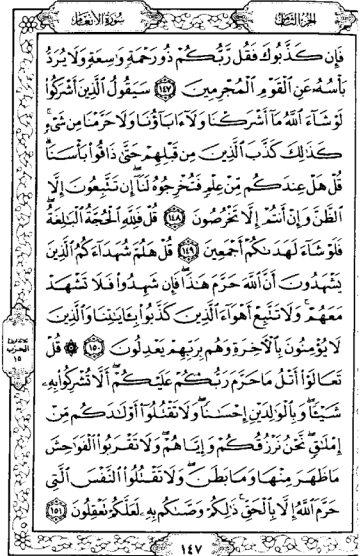 الجزء الثامن
سورة الأنعام
فَإِن كَذَّبُوكَ فَقُل رَّبُّكُمْ ذُو رَحْمَةٍ وَاسِعَةٍ وَلَا يُرَدُّ
بَأْسُهُ عَنِ الْقَوْمِ الْمُجْرِمِينَ ١٤٧ سَيَقُولُ الَّذِينَ أَشْرَكُوا
لَوْ شَاءَ اللَّهُ مَا أَشْرَكْنَا وَلَا ءَابَاؤُنَا وَلَا حَرَّمْنَا مِن شَيْءٍ
كَذَٰلِكَ كَذَّبَ الَّذِينَ مِن قَبْلِهِمْ حَتَّىٰ ذَاقُوا بَأْسَنَا
قُلْ هَلْ عِندَكُم مِّنْ عِلْمٍ فَتُخْرِجُوهُ لَنَا إِن تَتَّبِعُونَ إِلَّا
الظَّنَّ وَإِنْ أَنتُمْ إِلَّا تَخْرُصُونَ ١٤٨ قُلْ فَلِلَّهِ الْحُجَّةُ الْبَالِغَةُ
فَلَوْ شَاءَ لَهَدَىٰكُمْ أَجْمَعِينَ ١٤٩ قُلْ هَلُمَّ شُهَدَاءَكُمُ الَّذِينَ
يَشْهَدُونَ أَنَّ اللَّهَ حَرَّمَ هَٰذَا فَإِن شَهِدُوا فَلَا تَشْهَدْ
مَعَهُمْ وَلَا تَتَّبِعْ أَهْوَاءَ الَّذِينَ كَذَّبُوا بِـَٔايَٰتِنَا وَالَّذِينَ
لَا يُؤْمِنُونَ بِالْءَاخِرَةِ وَهُم بِرَبِّهِمْ يَعْدِلُونَ ١٥٠ ۞ قُلْ
تَعَالَوْا أَتْلُ مَا حَرَّمَ رَبُّكُمْ عَلَيْكُمْ أَلَّا تُشْرِكُوا بِهِ
شَيْـًٔا وَبِالْوَالِدَيْنِ إِحْسَٰنًا وَلَا تَقْتُلُوا أَوْلَٰدَكُم مِّنْ
إِمْلَٰقٍ نَّحْنُ نَرْزُقُكُمْ وَإِيَّاهُمْ وَلَا تَقْرَبُوا الْفَوَٰحِشَ
مَا ظَهَرَ مِنْهَا وَمَا بَطَنَ وَلَا تَقْتُلُوا النَّفْسَ الَّتِي
حَرَّمَ اللَّهُ إِلَّا بِالْحَقِّ ذَٰلِكُمْ وَصَّىٰكُم بِهِ لَعَلَّكُمْ تَعْقِلُونَ ١٥١
الحزب
١٥
١٤٧